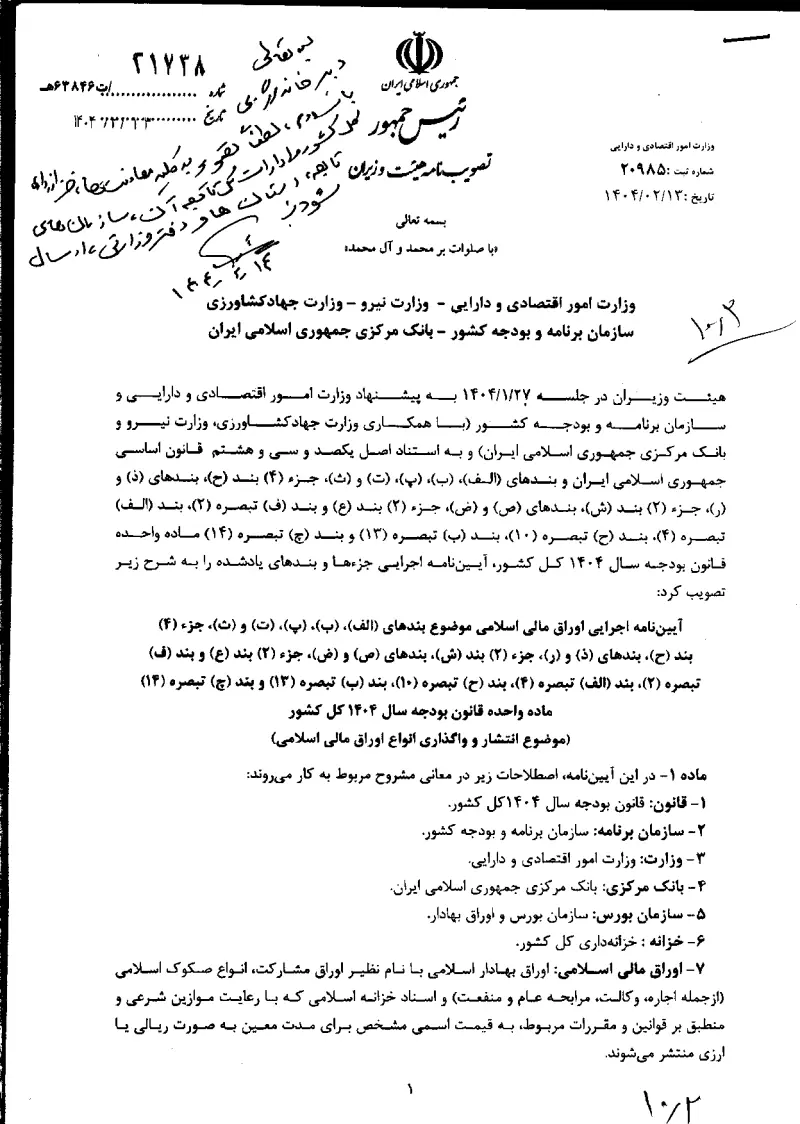 جمهوری اسلامی ایران
رئیس جمهور
تصویب نامه هیئت وزیران
۲۱۷۳۸
شماره ................../ت۶۳۸۴۶هـ
تاریخ
وزارت امور اقتصادی و دارایی
شماره ثبت :۲۰۹۸۵
تاریخ :۱۴۰۴/۰۲/۱۳
بسمه تعالی
دبیرخانه
با سلام، لطفاً
شود
بسمه تعالی
«با صلوات بر محمد و آل محمد»
وزارت امور اقتصادی و دارایی - وزارت نیرو - وزارت جهادکشاورزی
سازمان برنامه و بودجه کشور - بانک مرکزی جمهوری اسلامی ایران
۱۰/۳
هیئت وزیران در جلسه ۱۴۰۴/۱/۲۷ به پیشنهاد وزارت امور اقتصادی و دارایی و
سازمان برنامه و بودجه کشور (با همکاری وزارت جهادکشاورزی، وزارت نیرو و
بانک مرکزی جمهوری اسلامی ایران) و به استناد اصل یکصد و سی و هشتم قانون اساسی
جمهوری اسلامی ایران و بندهای (الف)، (ب)، (پ)، (ت) و (ث)، جزء (۴) بند (ح)، بندهای (ذ) و
(ر)، جزء (۲) بند (ش)، بندهای (ص) و (ض)، جزء (۲) بند (ع) و بند (ف) تبصره (۲)، بند (الف)
تبصره (۴)، بند (ح) تبصره (۱۰)، بند (ب) تبصره (۱۳) و بند (چ) تبصره (۱۴) ماده واحده
قانون بودجه سال ۱۴۰۴ کل کشور، آیین‌نامه اجرایی جزءها و بندهای یادشده را به شرح زیر
تصویب کرد:
آیین‌نامه اجرایی اوراق مالی اسلامی موضوع بندهای (الف)، (ب)، (پ)، (ت) و (ث)، جزء (۴)
بند (ح)، بندهای (ذ) و (ر)، جزء (۲) بند (ش)، بندهای (ص) و (ض)، جزء (۲) بند (ع) و بند (ف)
تبصره (۲)، بند (الف) تبصره (۴)، بند (ح) تبصره (۱۰)، بند (ب) تبصره (۱۳) و بند (چ) تبصره (۱۴)
ماده واحده قانون بودجه سال ۱۴۰۴ کل کشور
(موضوع انتشار و واگذاری انواع اوراق مالی اسلامی)
ماده ۱- در این آیین‌نامه، اصطلاحات زیر در معانی مشروح مربوط به کار می‌روند:
۱- قانون: قانون بودجه سال ۱۴۰۴کل کشور.
۲- سازمان برنامه: سازمان برنامه و بودجه کشور.
۳- وزارت: وزارت امور اقتصادی و دارایی.
۴- بانک مرکزی: بانک مرکزی جمهوری اسلامی ایران.
۵- سازمان بورس: سازمان بورس و اوراق بهادار.
۶- خزانه : خزانه‌داری کل کشور.
۷- اوراق مالی اسلامی: اوراق بهادار اسلامی با نام نظیر اوراق مشارکت، انواع صکوک اسلامی
(ازجمله اجاره، وکالت، مرابحه عام و منفعت) و اسناد خزانه اسلامی که با رعایت موازین شرعی و
منطبق بر قوانین و مقررات مربوط، به قیمت اسمی مشخص برای مدت معین به صورت ریالی یا
ارزی منتشر می‌شوند.
۱
۱۰/۲